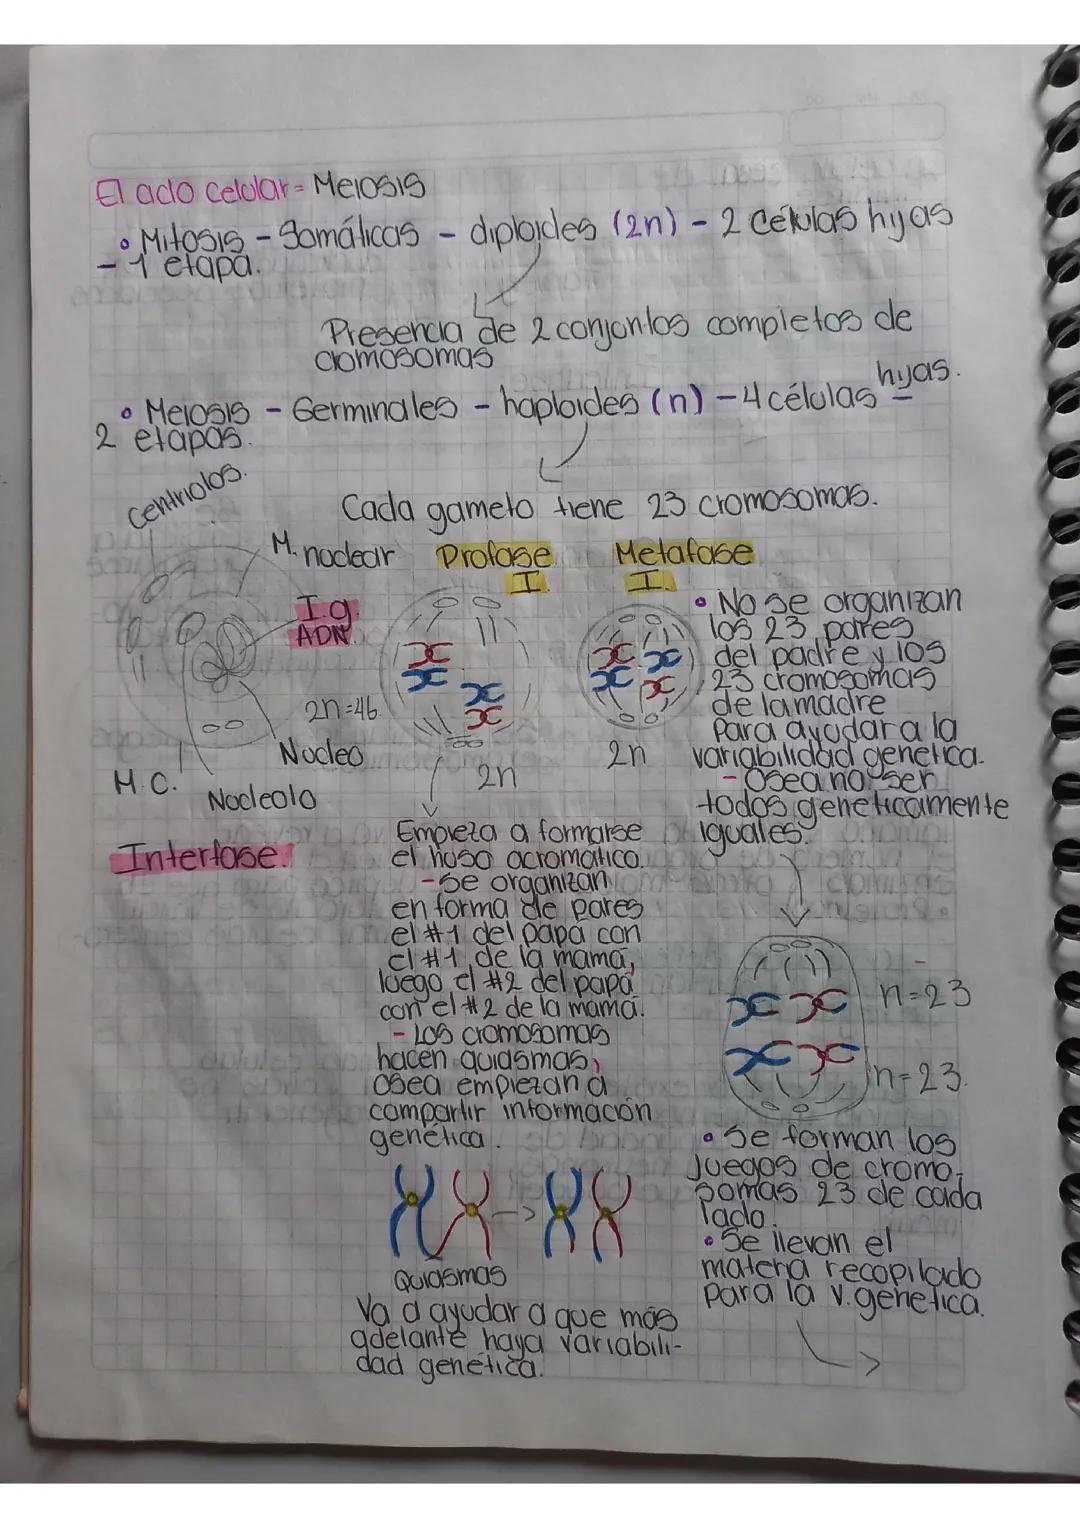 El ciclo celular = Meiosis
• Mitosis - Somáticas - diploides (2n) - 2 células hijas
- 1 etapa.
Presencia de 2 conjuntos completos de
cromosomas
• Meiosis - Germinales - haploides (n) - 4 células hijas. -
2 etapas.
Cada gameto tiene 23 cromosomas.
centriolos.
M. nuclear
I.g.
ADN.
2n=46.
Nucleo
Nucleolo
M.C.
Interfase.
Profase
I.
2n
Empieza a formarse
el huso acromatico.
- se organizan
en forma de pares
el #1 del papá con
el #1 de la mamá,
luego el #2 del papá
con el #2 de la mamá.
- Los cromosomas
hacen quiasmas,
osea empiezan a
compartir información
genética.
Quiasmas
Va a ayudar a que más
adelante haya variabili-
dad genética.
Metafase
I.
2n
• No se organizan
los 23 pares
del padre y los
23 cromosomas
de la madre
Para ayudar a la
variabilidad genetica.
- Osea no ser
todos geneticamente
iguales.
n=23
n=23.
• Se forman los
juegos de cromo-
somas 23 de cada
lado.
• Se llevan el
materia recopilado
para la v. genetica.